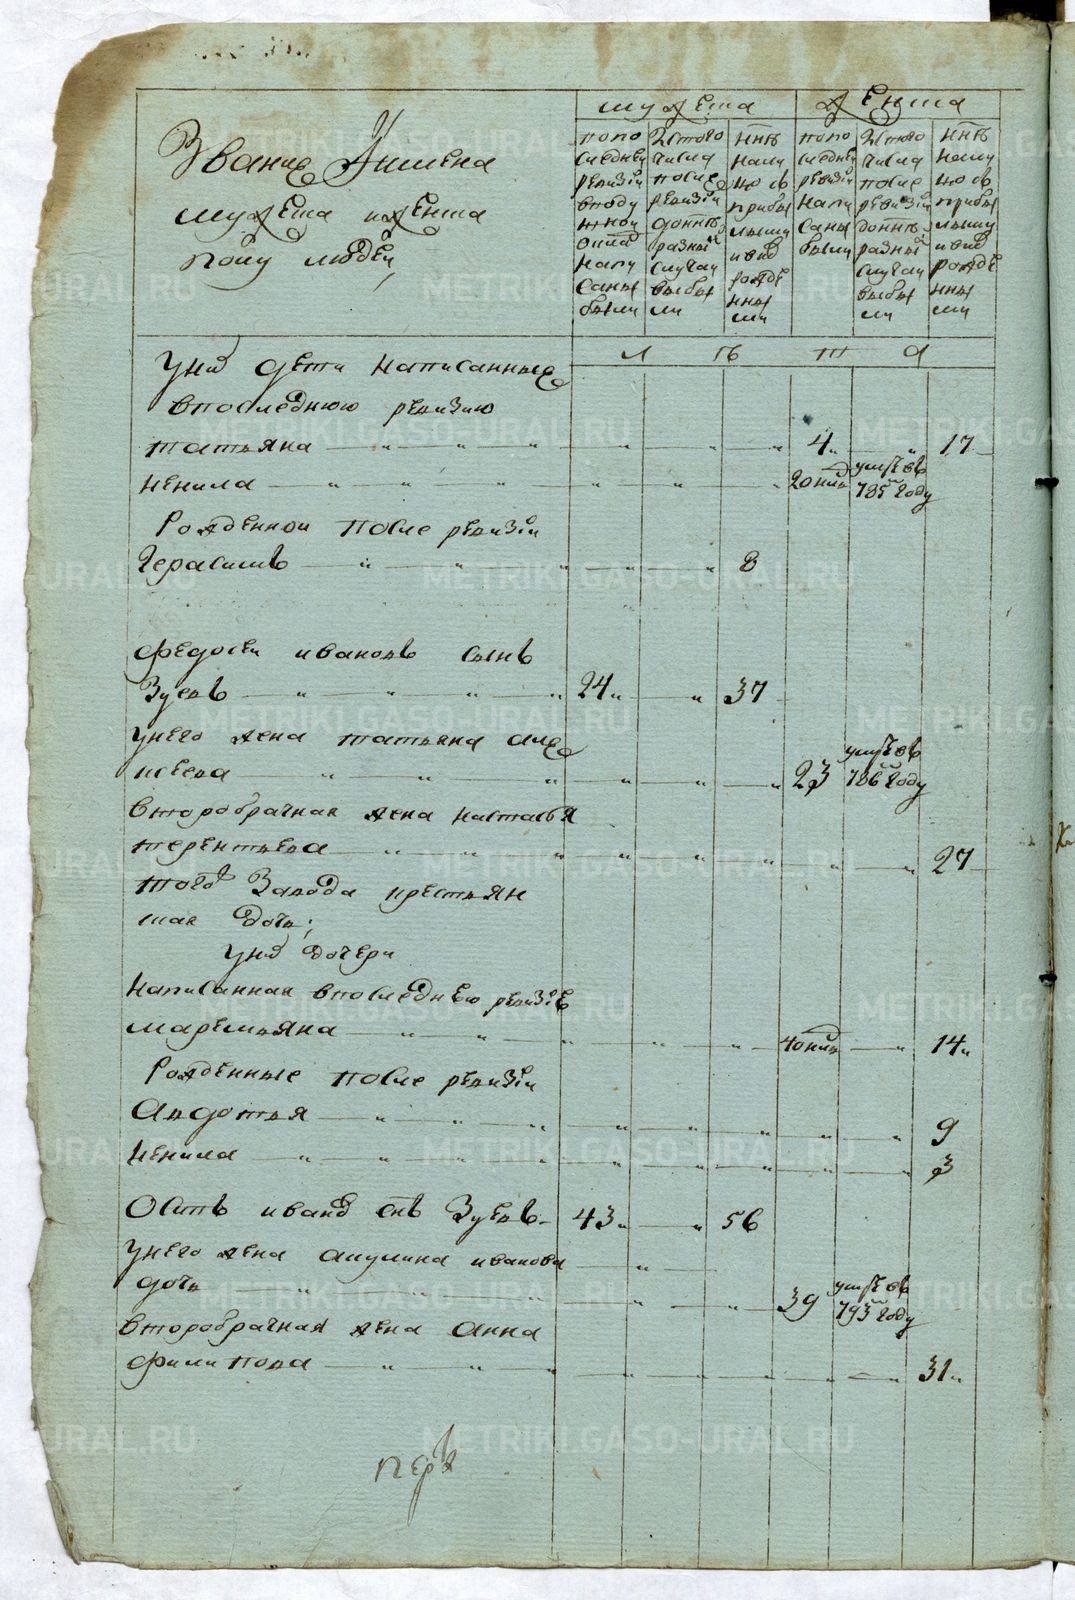 мужеска
женска
Звание и имена
мужеска и женска
полу людей
по последней ревизіи в подушной оклад написаны были
Из того числа после ревизіи до ныне разными случаи выбыли
ныне на лицо с прибылыми и вновь рожденными
по последней ревизіи написаны были
Из того числа после ревизіи до ныне разными случаи выбыли
ныне на лицо с прибылыми и вновь рожденными
л ѣ т а
у них дети написанные
в последнюю ревизию
татьяна 4 17
ненила 2 умре въ 785 году
Рожденной после ревизіи
Герасимъ 8
федосеи ивановъ сынъ
Зуевъ 24 37
у него жена татьяна але
ксеева 23 умре въ 786 году
второбрачная жена настасья
терентьева 27
того завода крестьян
ская дочь;
у них дочери
написанная в последнею ревизіе
маремьяна 4 14
Рожденные после ревизіи
Авдотья 9
ненила 3
Осипъ иванов снъ Зуевъ 43 56
у него жена акулина иванова
дочь 39 умре въ 793 году
второбрачная жена анна
филипова 31
METRIKI.GASO-URAL.RU